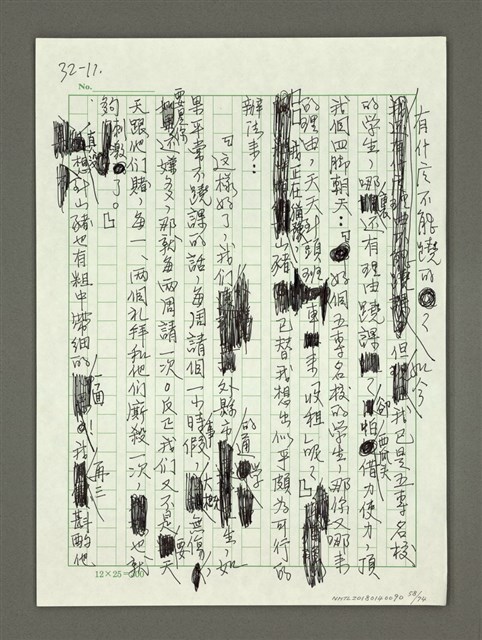 32-11.
No.
有什麼不能蹺的？如今
但我已是五專名校
的學生，哪裏還有理由蹺課？卻怕西瓜夫借力使力，頂
我個四腳朝天：「好個五專名校的學生，那你又哪來
的理由，天天到頭班車來『收租』呢？」
我正在猶豫，山豬已替我想出似乎頗為可行的
辦法來：
「這樣好了，我們是外縣市的通學生，如
果平常不蹺課的話，每周請個一小時事假，大概無傷，
要是你還嫌多，那就每兩周請一次。反正我們又不是要天
天跟他們賭，每一、兩個禮拜和他們廝殺一次，也就
夠刺激了。」
真沒想到山豬也有粗中帶細的一面！我再三斟酌他
12×25=300
NMTL20180140090 58/74